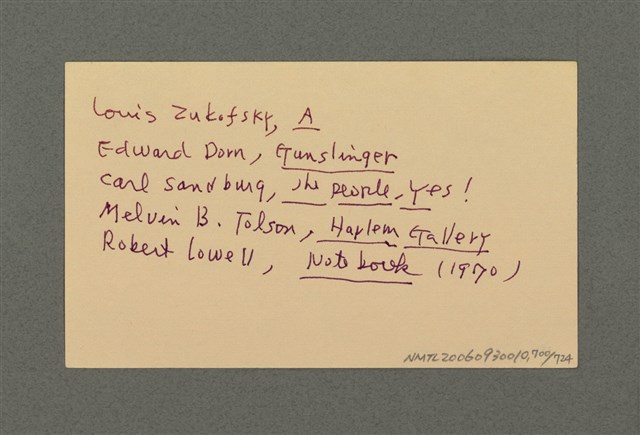 Louis Zukofsky, A
Edward Dorn, Gunslinger
Carl Sandburg, The People, Yes!
Melvin B. Tolson, Harlem Gallery
Robert Lowell, Notebook (1970)
NMTL20060930010,700/724